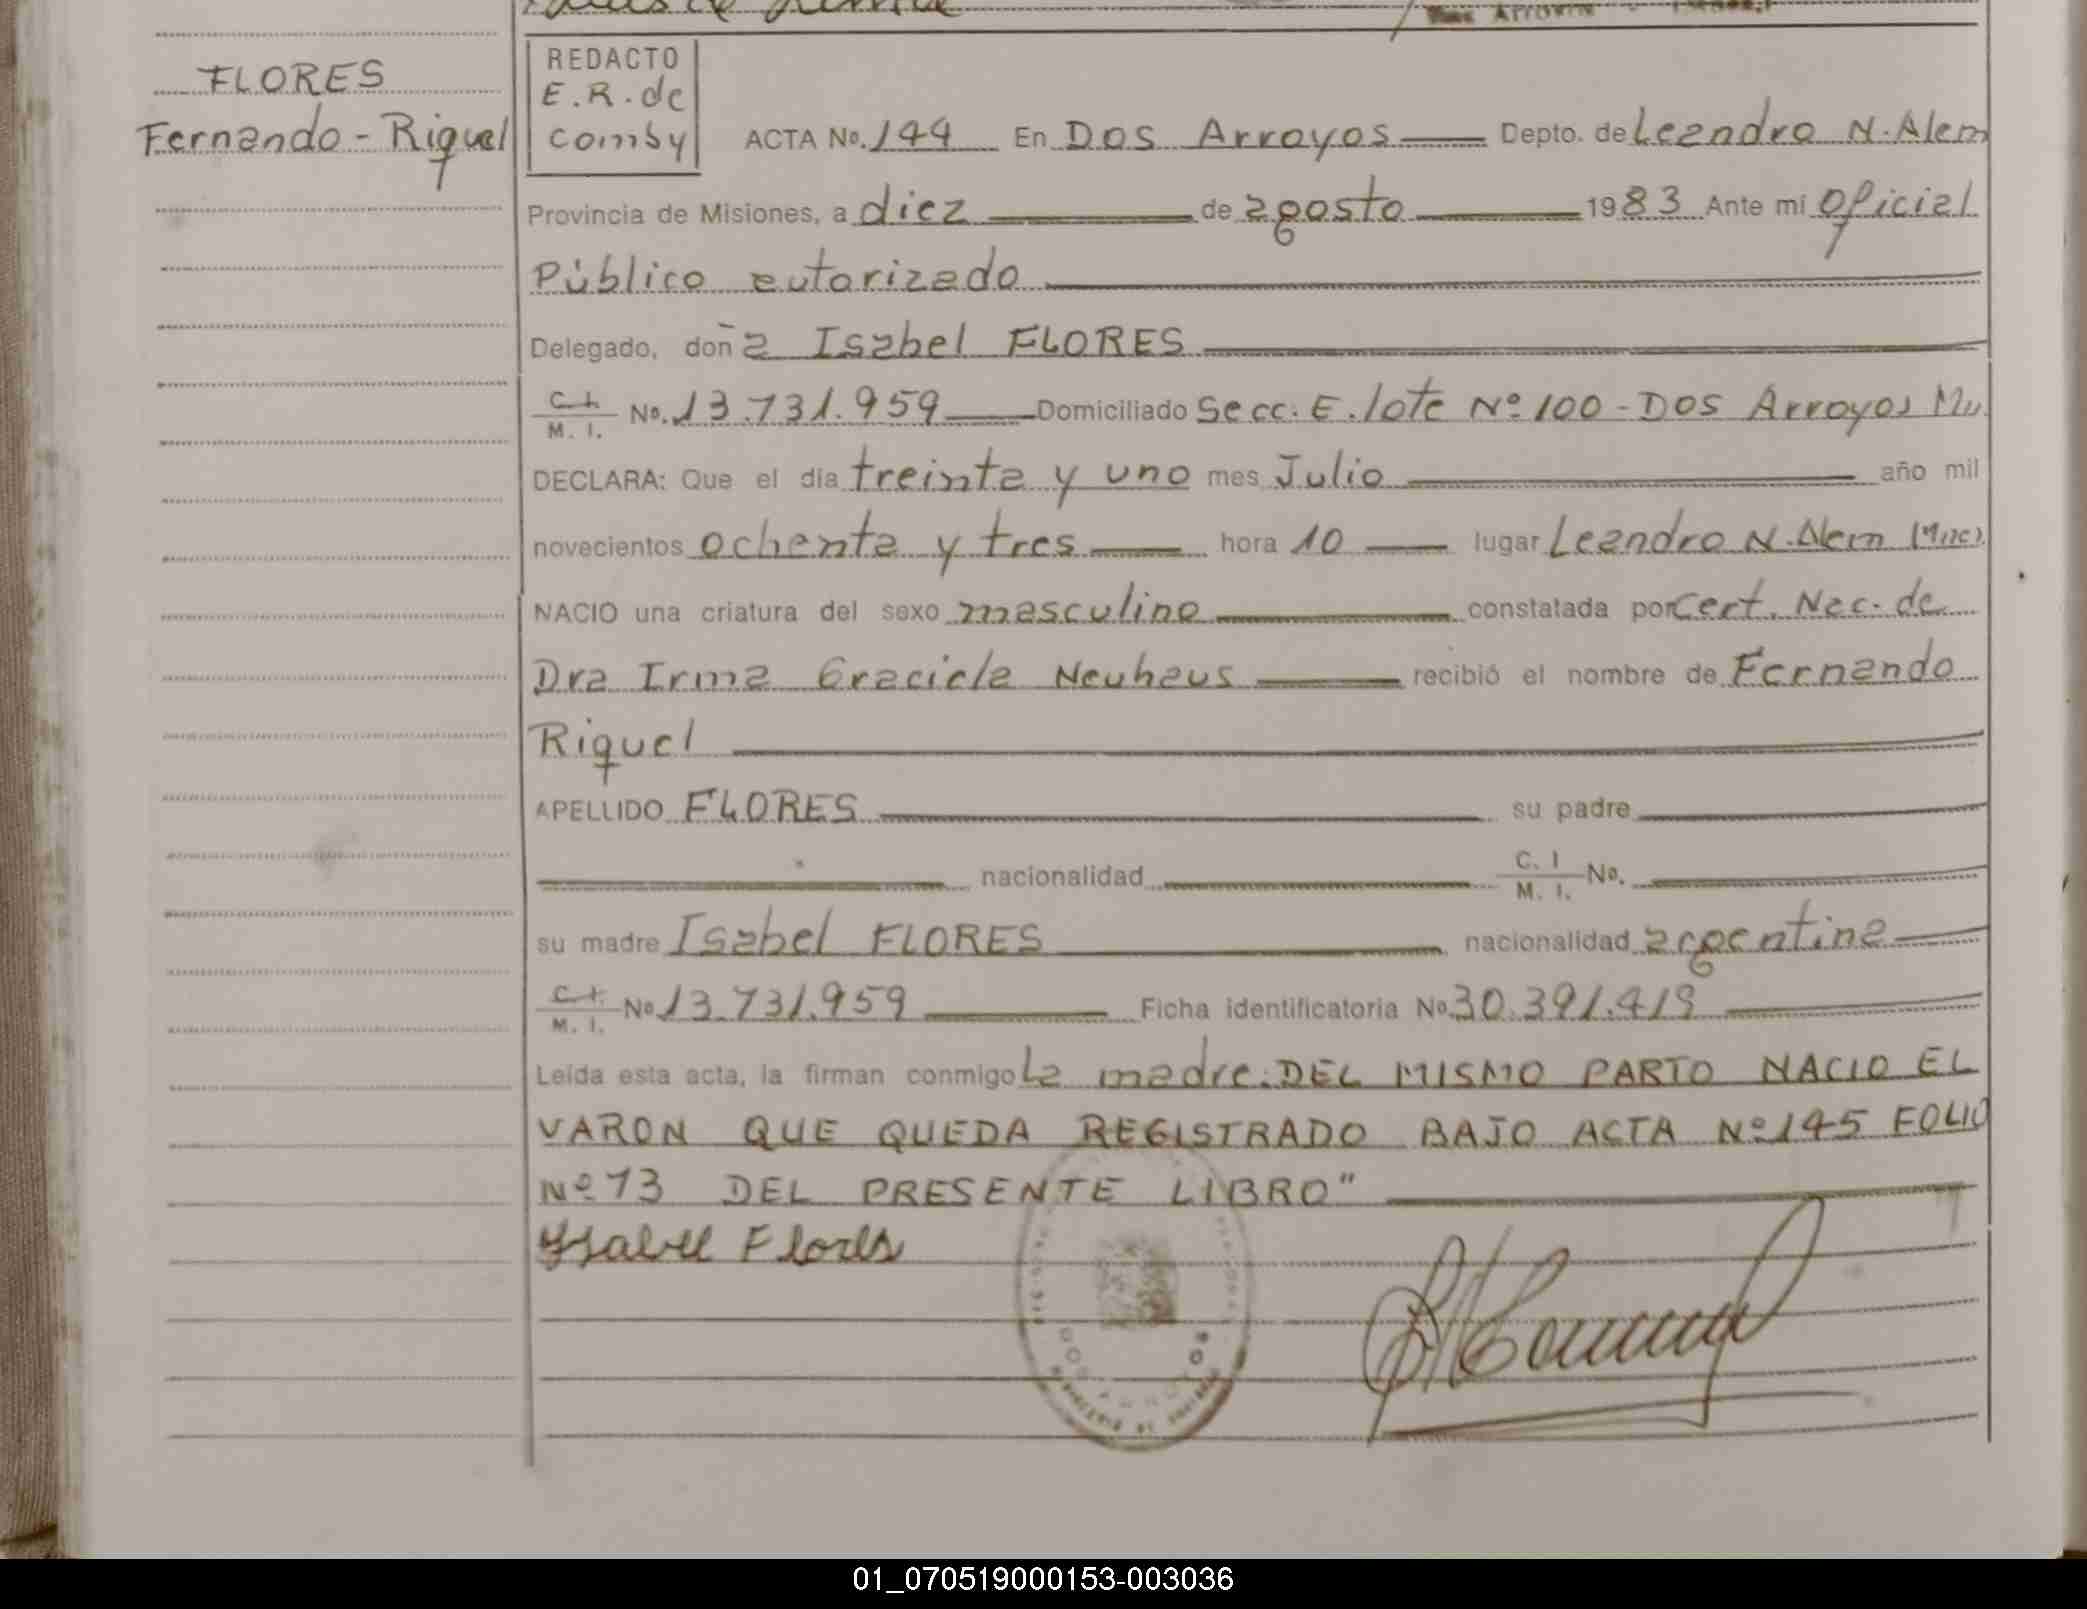 FLORES
Fernando - Riquel
REDACTO
E.R. de
comby
ACTA No. 144 En Dos Arroyos Depto. de Leandro N. Alem
Provincia de Misiones, a diez de agosto 1983 Ante mí Oficial
Público autorizado
Delegado, don a Isabel FLORES
C.I. M. I. No. 13.731.959 Domiciliado Secc. E. lote Nº 100 - Dos Arroyos
DECLARA: Que el día treinta y uno mes Julio año mil
novecientos ochenta y tres hora 10 lugar Leandro N. Alem (Mnes).
NACIO una criatura del sexo masculino constatada por Cert. Nac. de
Dra Irma Graciela Neuhaus recibió el nombre de Fernando
Riquel
APELLIDO FLORES su padre
nacionalidad C. I M. I. No.
su madre Isabel FLORES nacionalidad argentina
C.I. M. I. No 13.731.959 Ficha identificatoria No. 30.391.419
Leída esta acta, la firman conmigo La madre. DEL MISMO PARTO NACIO EL
VARON QUE QUEDA REGISTRADO BAJO ACTA Nº 145 FOLIO
Nº 73 DEL PRESENTE LIBRO"
Ysabel Flores
01_070519000153-003036